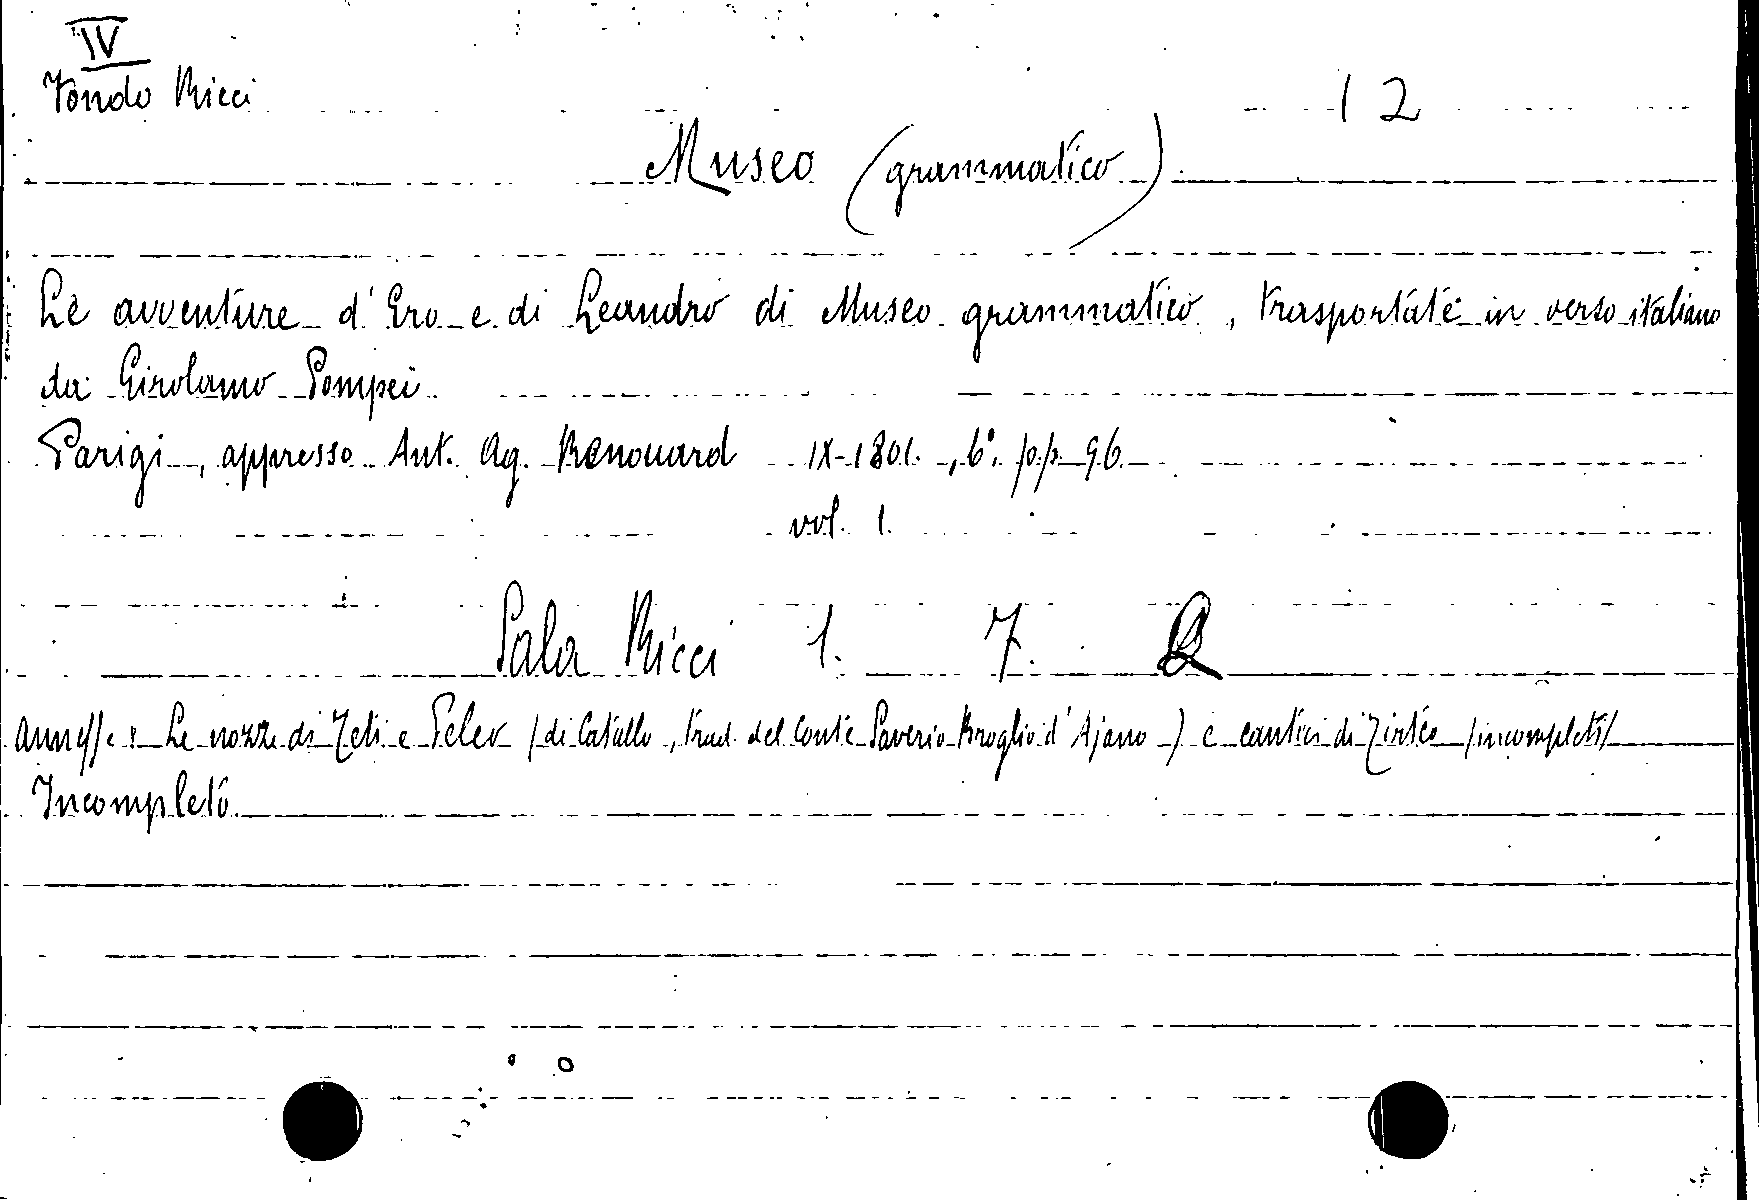 IV
Fondo Ricci
12
Museo (grammatico)
Le avventure d'Ero e di Leandro di Museo grammatico, trasportate in verso italiano
da Girolamo Pompei
Parigi, appresso Ant. Ag. Renouard IX-1801., 6°. pp. 96
vol. 1.
Sala Ricci 1. 7.
Annesse: Le nozze di Teti e Peleo (di Catullo, trad. del Conte Saverio Broglio d'Ajano) e cantici di Tirteo (incompleti)
Incompleto